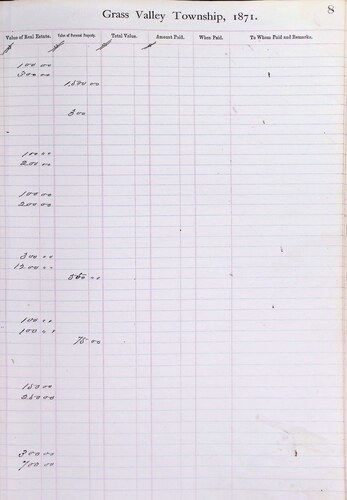 Grass Valley Township, 1871.
8
Value of Real Estate. Value of Personal Property. Total Value. Amount Paid. When Paid. To Whom Paid and Remarks.
100 00
800 00
1,500 00
300
100 00
200 00
100 00
200 00
300 00
1200 00
550 00
100 00
100 00
75 00
150 00
250 00
300 00
700 00